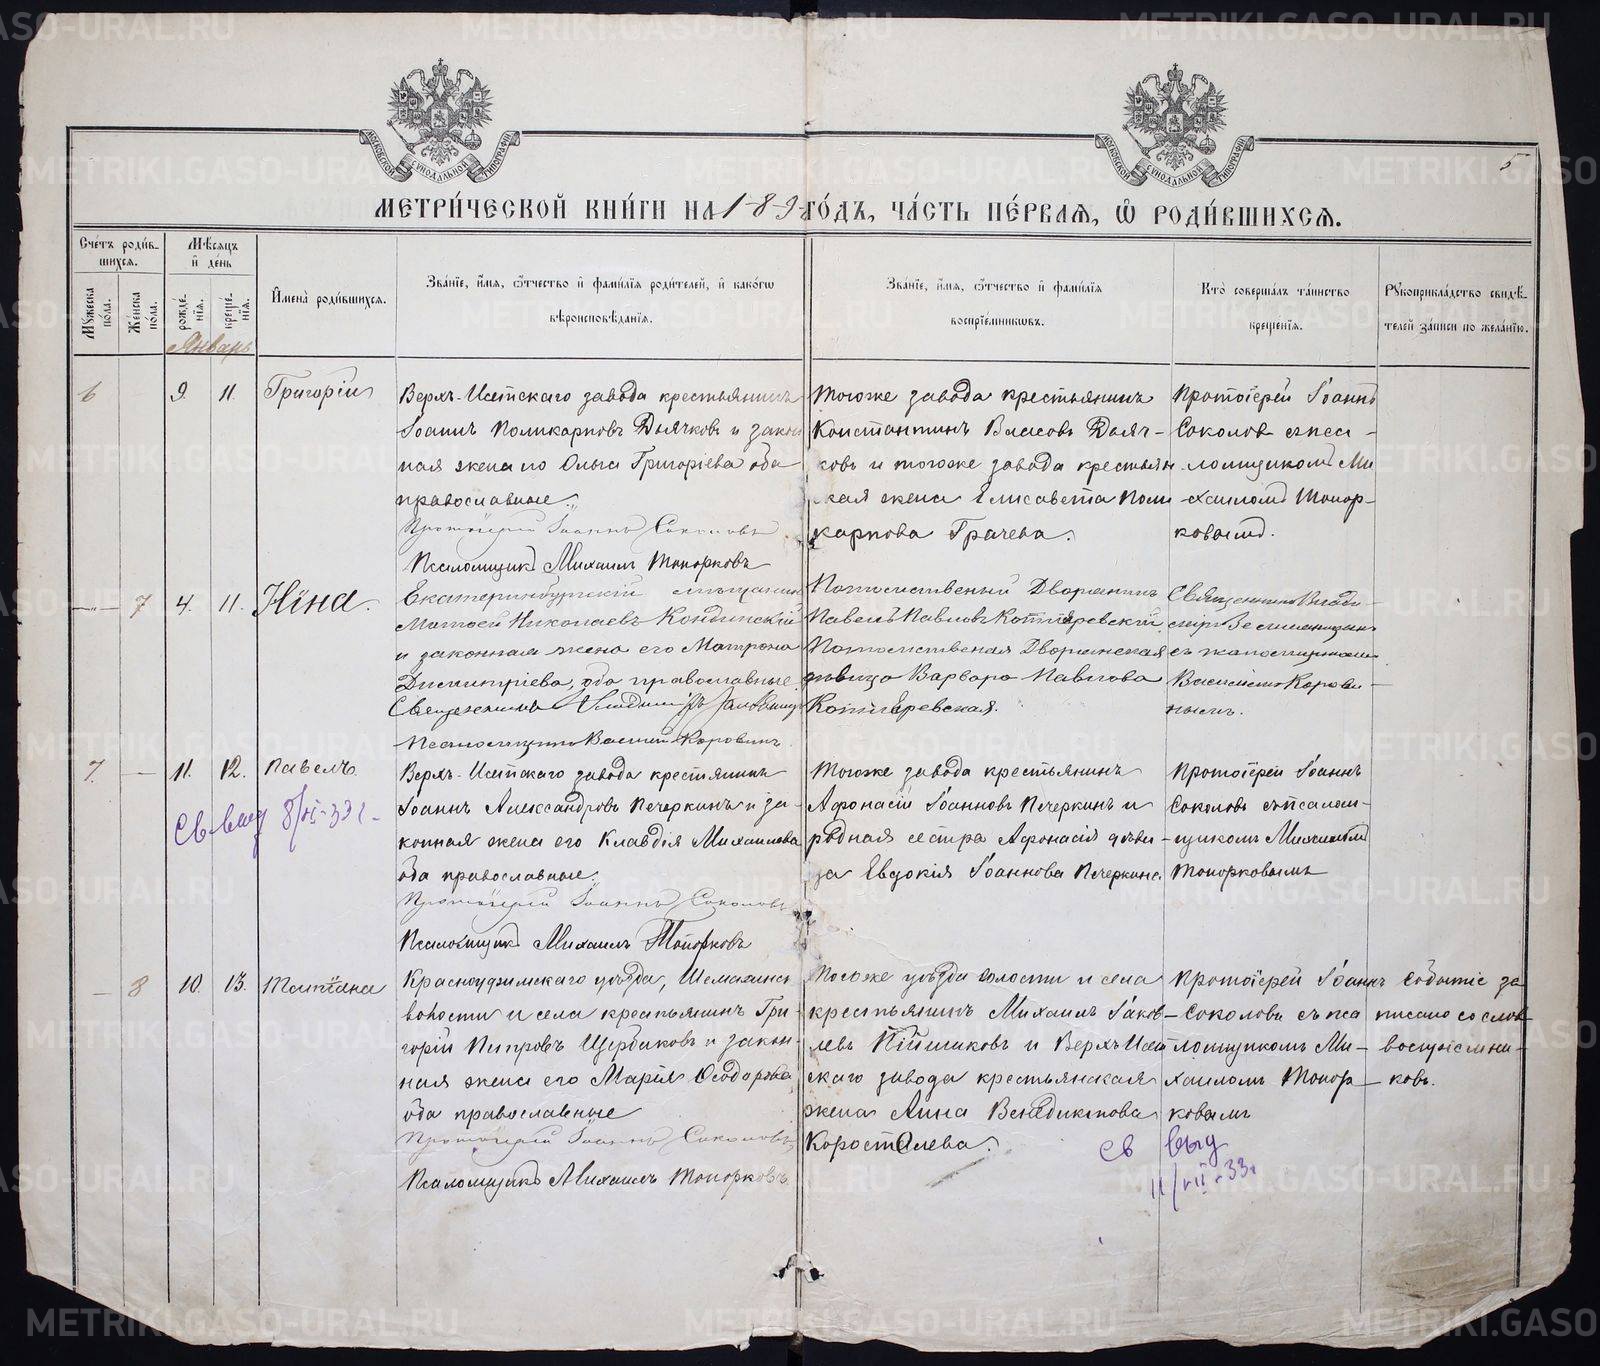 5
МЕТРИ́ЧЕСКОЙ КНИ́ГИ НА 1-8-9- ГО́ДЪ, ЧА́СТЬ ПЕ́РВАЯ, Ѽ РОДИ́ВШИХСЯ.
Сче́тъ роди́в-
шихся.
Мѣ́сяцъ
и҆ де́нь
Мꙋ́жеска по́ла.
Же́нска по́ла.
рожде́-нїѧ.
креще́-нїѧ.
И҆мена̀ роди́вшихся.
Зва́нїе, и҆́мѧ, ѻ҆́тчество и҆ фами́лїѧ роди́телей, и҆ како́гѡ
вѣроисповѣ́данїѧ.
Зва́нїе, и҆́мѧ, ѻ҆́тчество и҆ фами́лїѧ
воспрїе́мникѡвъ.
Кто̀ соверша́лъ та́инство
креще́нїѧ.
Рꙋкоприкла́дство свидѣ́-
телей за́писи по жела́нїю.
Январь
6
9.
11.
Григорій
Верхъ-Исетскаго завода крестьянинъ
Іоаннъ Поликарповъ Дьячковъ и закон
ная жена его Ольга Григоріева оба
православные.
Протоіерей Іоаннъ Соколовъ
Псаломщикъ Михаилъ Топорковъ
Тогоже завода крестьянинъ
Константинъ Власовъ Дьяч-
ковъ и тогоже завода крестьян
ская жена Елисавета Поли
карпова Грачева.
Протоіерей Іоаннъ
Соколов съ пса-
ломщикомъ Ми
хаиломъ Топор-
ковымъ.
7
4.
11.
Нина.
Екатеринбургскій мѣщанинъ
Матѳей Николаевъ Кондинскій
и законная жена его Матрона
Димитріева, оба православные.
Священникъ Владимиръ
Псаломщикъ Василій Коровинъ
Потомственный Дворянинъ
Павелъ Павловъ Котляревскій
Потомственная Дворянская
дѣвица Варвара Павлова
Котляревская.
Священникъ Влади-
миръ
съ псаломщикомъ
Василіемъ Корови-
нымъ.
7.
11.
12.
Павелъ
Св выд 8/
Верхъ-Исетскаго завода крестьянинъ
Іоаннъ Александровъ Печеркинъ и за-
конная жена его Клавдія Михаилова
оба православные.
Протоіерей Іоаннъ Соколовъ
Псаломщикъ Михаилъ Топорковъ
Тогоже завода крестьянинъ
Афонасій Іоанновъ Печеркинъ и
родная сестра Афонасія дѣви-
ца Евдокія Іоаннова Печеркина
Протоіерей Іоаннъ
Соколовъ съ псалом-
щикомъ Михаиломъ
Топорковымъ
8
10.
13.
Татіана
Красноуфимскаго уѣзда, Шемахинск
волости и села крестьянинъ Гри-
горій Петровъ Щербаковъ и закон-
ная жена его Марія Ѳеодорова
оба православные
Протоіерей Іоаннъ Соколовъ
Псаломщикъ Михаилъ Топорковъ
Тогоже уѣзда волости и села
крестьянинъ Михаилъ Іаков-
левъ и Верхъ Исет
скаго завода крестьянская
жена Анна Венедиктова
Коросталева.
Протоіерей Іоаннъ
Соколовъ съ пса
ломщикомъ Ми-
хаиломъ Топор-
ковымъ
Св выд
11/VII-33г
Событіе за
писано со слов
воспріемни-
ковъ.